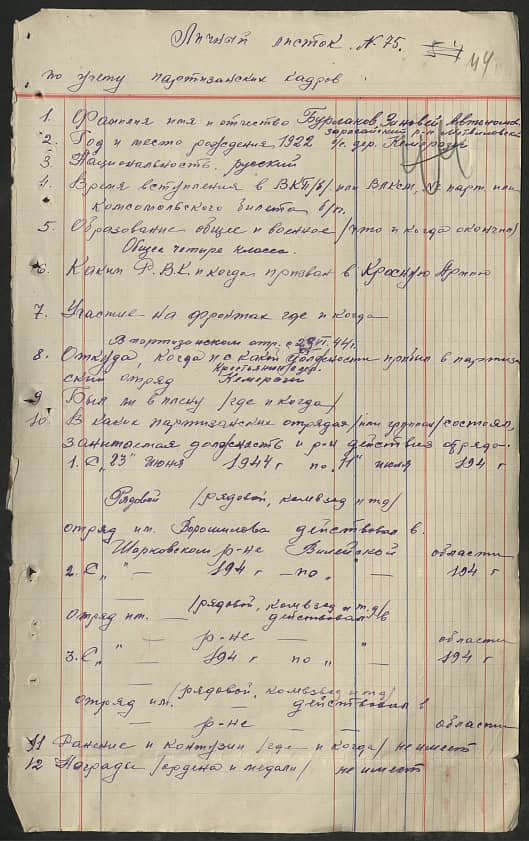 Личный листок. N. 75. 44
по учету партизанских кадров.
1. Фамилия имя и отчество Бурсаков Зиновей Автономов.
зарасайский р-н
2. Год и место рождения 1922 с/с. дер. Кемераги
3. Национальность. русский
4. Время вступления в ВКП/б/ или ВЛКСМ, № парт. или
комсомольского билета б/п.
5. Образование общее и военное /что и когда окончил/
Общее четыре класса.
6. Каким Р.В.К. и когда призван в Красную Армию
7. Участие на фронтах где и когда
В партизанском отр. с 23 VI. 44 г.
8. Откуда, когда и с какой должности прибыл в партиза
крестьянин дер.
ский отряд Кемераги
9 Был ли в плену /где и когда/
10. В каких партизанских отрядах /или группах/ состоял,
занимаемая должность и р-н действия отряда.
1. С „23" июня 1944 г по „11" июля 194 г
Рядовой /рядовой, комвзвод и тд/
отряд им. Ворошилова действовал в.
Шарковском р-не Вилейской области
2. С „ " — 194 г — по „ " — 194 г
/рядовой, комвзвод и тд/
отряд им. — действовал в
— р-не — области
3. С „ " — 194 г по „ " — 194 г
/рядовой, комвзвод и тд/
отряд им. — действовал в
— р-не — области
11 Ранение и контузии /где и когда/ не имеет
12 Награды /ордена и медали/ не имеет